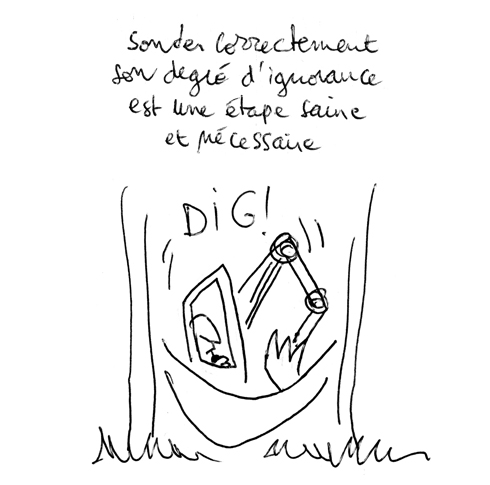 sonder correctement
son degré d'ignorance
est une étape saine
et nécessaire
DIG!